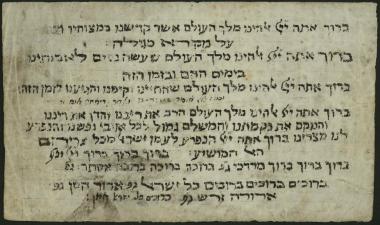 ברוך אתה ייי אלהינו מלך העולם אשר קדישנו במצותיו וצונו
על מקרא מגילה
ברוך אתה ייי אלהינו מלך העולם שעשה ניסים לאבותינו
בימים ההם ובזמן הזה
ברוך אתה ייי אלהינו מלך העולם שהחיינו וקימנו והגיענו לזמן הזה
ברוך אתה ייי אלהינו מלך העולם הרב את ריבנו והדן את דיננו
והנוקם את נקמתנו והמשלם גמול לכל אויבי נפשנו והנפרע
לנו מצרינו ברוך אתה ייי הנפרע לעמו ישראל מכל צריהם
האל המושיע ברוך ברוך ברוך
ברוך ברוך ברוך מרדכי ברוכה ברוכה ברוכה אסתר
ברוכים ברוכים ברוכים כל ישראל ארור המן
ארורה זרש